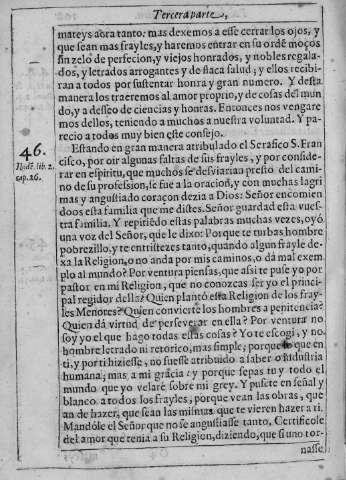 Tercera parte,
mateys aora tanto: mas dexemos a esse cerrar los ojos, y
que sean mas frayles, y haremos entrar en su ordē moços
sin zelo de perfecion, y viejos honrados, y nobles regala-
dos, y letrados arrogantes y de flaca salud; y ellos recibi-
ran a todos por sustentar honra y gran numero. Y desta
manera los traeremos al amor proprio, y de cosas del mun
do, y a desseo de ciencias y honras. Entonces nos vengare
mos dellos, teniendo a muchos a nuestra voluntad. Y pa-
recio a todos muy bien este consejo.
46. Estando en gran manera atribulado el Serafico S. Fran
Ibidē. lib. 2. cisco, por oir algunas faltas de sus frayles, y por conside-
cap. 26. rar en espiritu, que muchos se desviarian presto del cami-
no de su profession, se fue a la oracion, y con muchas lagri
mas y angustiado coraçon dezia a Dios: Señor encomien
doos esta familia que me distes. Señor guardad esta vues-
tra familia. Y repitiēdo estas palabras muchas vezes, oyó
una voz del Señor, que le dixo: Porque te turbas hombre
pobrezillo, y te entristezes tanto, quando algun frayle de-
xa la Religion, o no anda por mis caminos, o dà mal exem
plo al mundo? Por ventura piensas, que assi te puse yo por
pastor en mi Religion, que no conozcas ser yo el princi-
pal regidor della? Quien plantó esta Religion de los fray-
les Menores? Quien convierte los hombres a penitencia?
Quien dà virtud de perseverar en ella? Por ventura no
soy yo el que hago todas estas cosas? Yo te escogi, y no
hombre letrado ni retorico, mas simple; porque lo que en
ti, y por ti hiziesse, no fuesse atribuido a saber o industria
humana; mas a mi gracia: y porque sepas tu y todo el
mundo que yo velaré sobre mi grey. Y pusete en señal y
blanco a todos los frayles, porque vean las obras, que
an de hazer, que sean las mismas que te vieren hazer a ti.
Mandóle el Señor que no se angustiasse tanto. Certificole
del amor que tenia a su Religion, diziendo, que si uno tor-
nasse